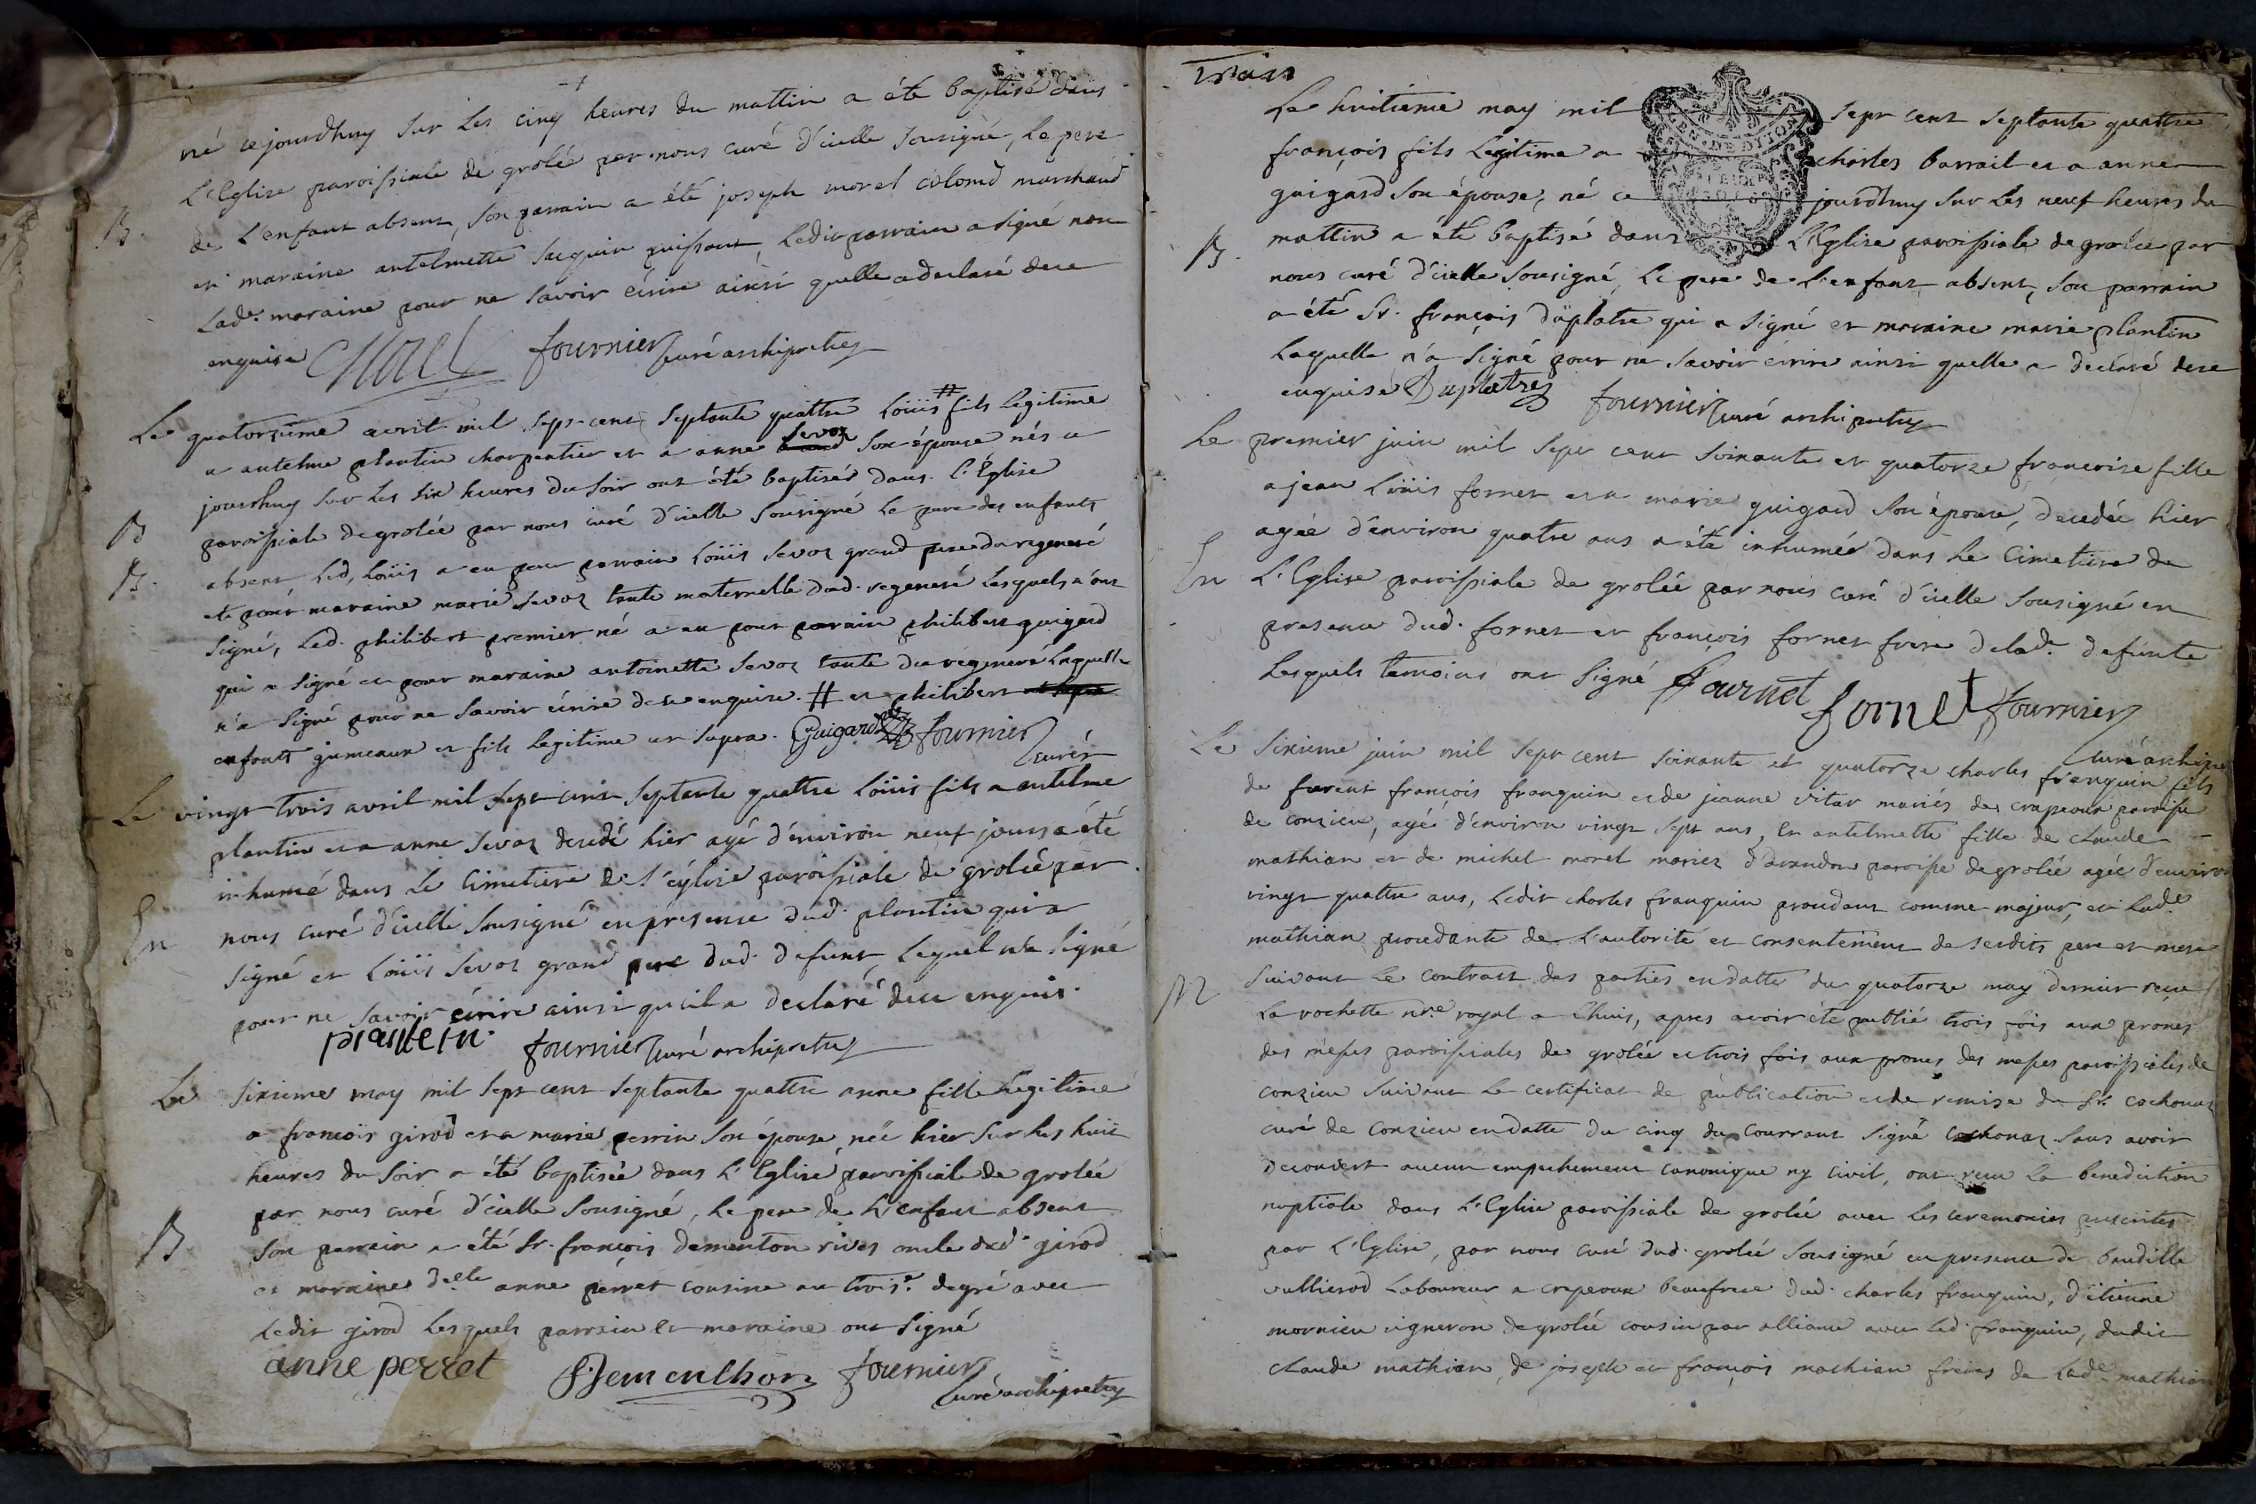 né cejourdhuy sur les cinq heures du mattin a été baptisé dans
L'Eglise paroissiale de grolée par nous curé d'icelle sousigné, le pere
B. de L'enfant absent, son parrain a été joseph morel colomd marchand
et maraine antelmette jacquin puissant, ledit parrain a signé non
Lade. maraine pour ne savoir écrire ainsi quelle a declaré dece
enquise Morel fournier curé archipretre
Le quatorzieme avril mil sept-cent septante quattre Loüis # fils legitime
a antelme plantin charpentier et a anne Sevoz son épouse nés ce
jourdhuy sur les six heures du soir ont été baptisés dans L'Église
B paroissiale de grolée par nous curé d'icelle sousigné le pere des enfants
B. absent led. Loüis a eu pour parrain Loüis Sevoz grand pere du regeneré
et pour maraine marie Sevoz tante maternelle dud. regeneré lesquels n'ont
signé, led. philibert premier né a eu pour parain philibert guigard
qui a signé et pour maraine antoinette Sevoz tante du regeneré laquelle
n'a signé pour ne savoir écrire dece enquise. # et philibert
enfants jumeaux et fils legitime ut supra. Guigard fournier
curé
Le vingt trois avril mil sept cent septante quattre Loüis fils a antelme
plantin et a anne Sevoz decedé hier agé d'environ neuf jours a été
inhumé dans le cimetiere de l'églize paroissiale de grolée par
En nous curé d'icelle sousigné en presence dud. plantin qui a
signé et Loüis Sevoz grand pere dud. defunt, lequel n'a signé
pour ne savoir écrire ainsi qu'il a declaré dece enquis.
plantein. fournier curé archipretre
Le sixieme may mil sept cent septante quattre anne fille legitime
a francois girod et a marie perrin son épouse, née hier sur les huit
heures du soir a été baptisée dans L'Eglise paroissiale de grolée
par nous curé d'icelle sousigné, le pere de L'enfant absent
B son parrain a été Sr. françois dementon rives oncle dud. girod
et maraine delle anne perret cousine au trois.e degré avec
ledit girod lesquels parrain et maraine ont signé
anne perret Dementhon fournier
curé archipretre
trois
Le huitieme may mil sept cent septante quattre
françois fils legitime a charles barrail et a anne
guigard son épouse, né ce jourdhuy sur les neuf heures du
B. mattin a été baptisé dans L'Eglise paroissiale de grolée par
nous curé d'icelle sousigné, le pere de L'enfant absent, son parrain
a été Sr. françois duplatre qui a signé et maraine marie plantin
laquelle n'a signé pour ne savoir écrire ainsi quelle a declaré dece
enquise Duplatre fournier curé archipretre
Le premier juin mil sept cent soixante et quatorze françoise fille
a jean Loüis fornet et a marie guigard son épouse, decedée hier
agée d'environ quatre ans a été inhumée dans le cimetiere de
En L'Eglise paroissiale de grolée par nous curé d'icelle sousigné en
presence dud. fornet et françois fornet frere delade. defunte
lesquels temoins ont signé fournet fornet fournier
curé archipre
Le sixieme juin mil sept cent soixante et quatorze charles franquin fils
de furent françois franquin et de jeanne vitar mariés de crapeoux paroisse
de conzieu, agé d'environ vingt sept ans, Et antelmette fille de claude
mathian et de michel morel mariez d'avandon paroisse de grolée agée d'environ
vingt-quattre ans, ledit charles franquin procedant comme majeur, et lade.
mathian procedante de L'autorité et consentement de sesdits pere et mere
M suivant le contrast des parties en datte du quatorze may dernier reçu
La rochette nre. royal a Lhuis, apres avoir été publié trois fois aux prones
des messes paroissiales de grolée et trois fois aux prones des messes paroissiales de
conzieu suivant le certificat de publication et de remise du Sr. cochonaz
curé de conzieu en datte du cinq du courrant signé cochonaz sans avoir
decouvert aucun empechement canonique ny civil, ont reçu la benediction
nuptiale dans L'Eglise paroissiale de grolée avec les ceremonies prescrites
par L'Eglise, par nous curé dud. grolée sousigné en presence de baudille
vullierod Laboureur a crapeoux beaufrere dud. charles franquin, d'etienne
mornieu vigneron de grolée cousin par alliance avec led. franquin, dudit
claude mathian, de joseph et françois mathian freres de lade. mathian